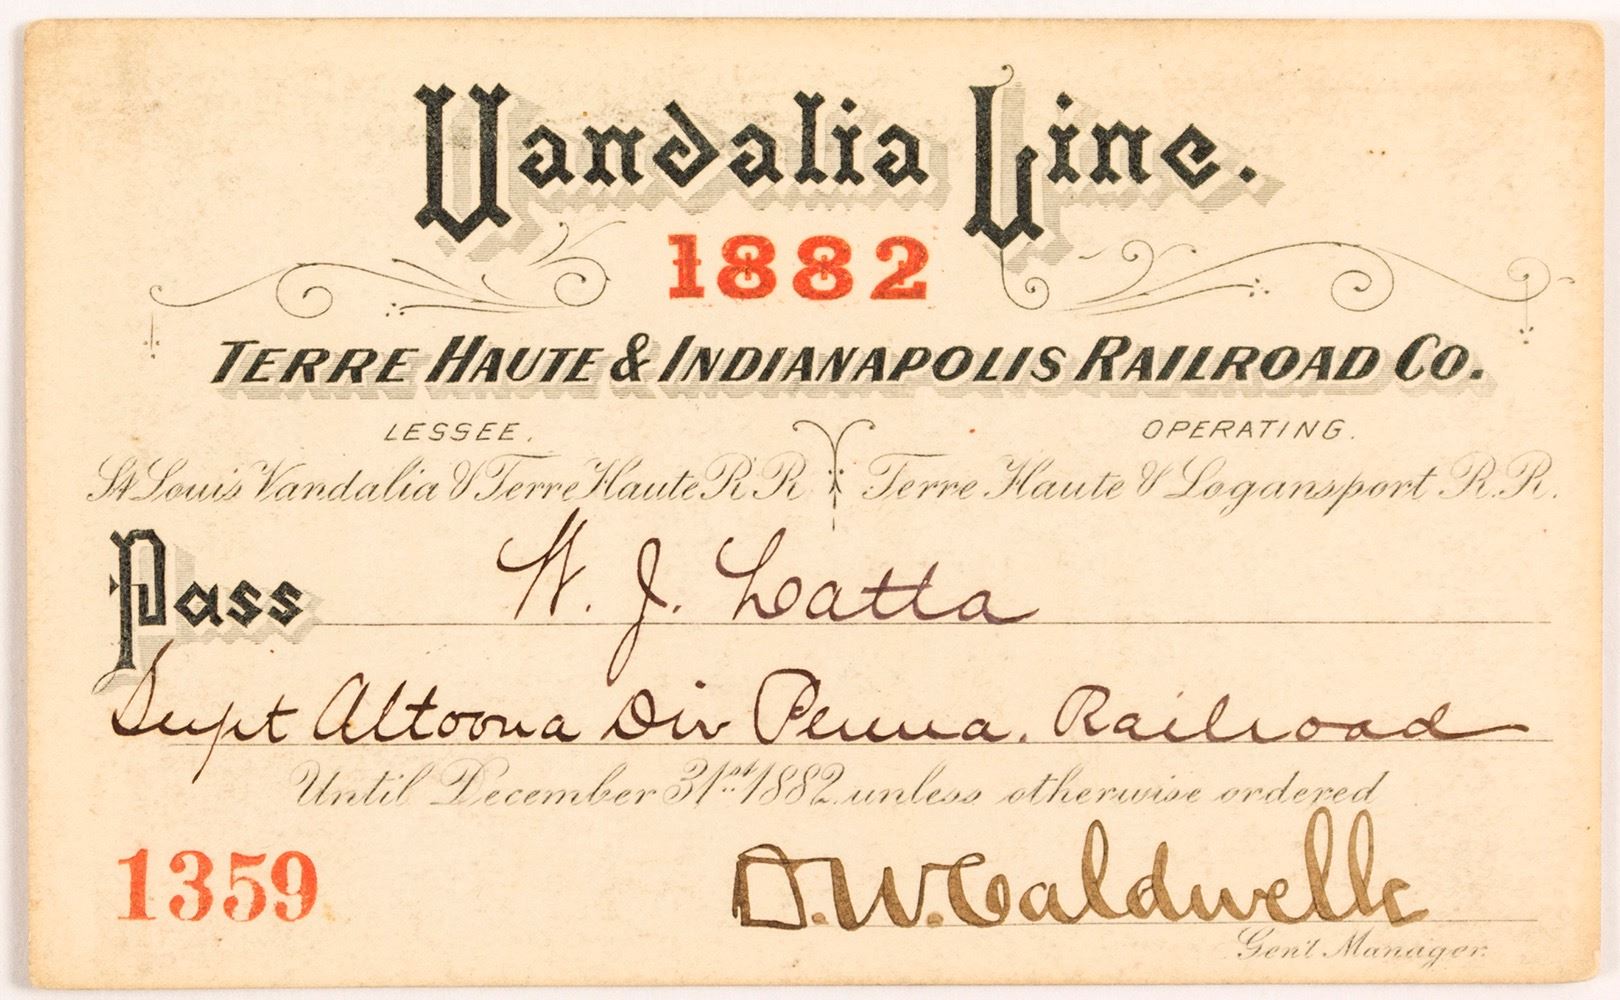 Vandalia Line.
1882
TERRE HAUTE & INDIANAPOLIS RAILROAD CO.
LESSEE. OPERATING.
St Louis Vandalia & Terre Haute R R Terre Haute & Logansport R.R.
Pass W. J. Latta
Supt Altoona Div Penna. Railroad
Until December 31st 1882 unless otherwise ordered
1359 D.W. Caldwell
Gen'l Manager.